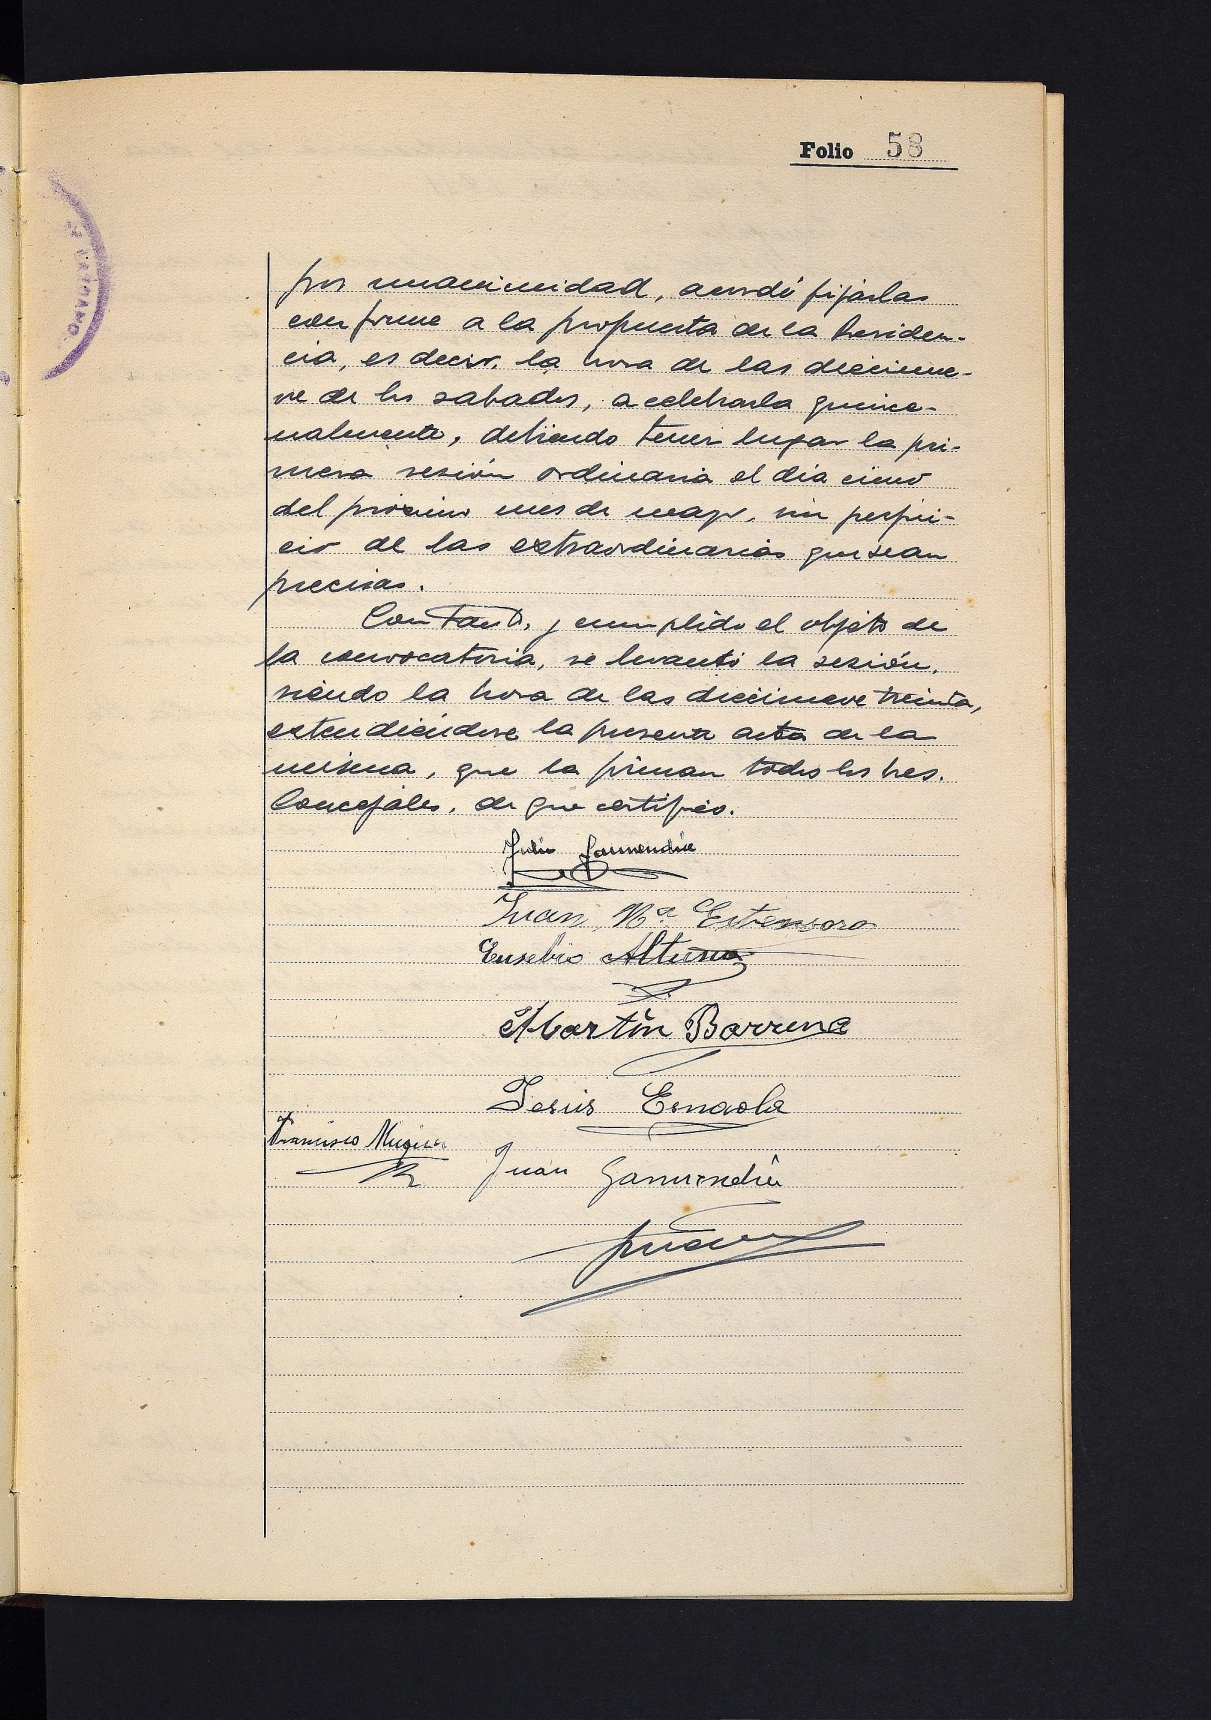 Folio 58
por unanimidad, acordó fijarlas
conforme a la propuesta de la Presiden-
cia, es decir, la hora de las diecinue-
ve de los sabados, a celebrarla quince-
nalmente, debiendo tener lugar la pri-
mera sesión ordinaria el día cinco
del próximo mes de mayo, sin perjui-
cio de las extraordinarias que sean
precisas.
Con tanto, y cumplido el objeto de
la convocatoria, se levantó la sesión,
siendo la hora de las diecinueve treinta,
extendiéndose la presente acta de la
misma, que la firman todos los Sres.
Concejales, de que certifico.
Julio Garmendia
Juan Mª Estensoro
Eusebio Altuna
Martín Barrena
Jesús Esnaola
Francisco Mugica
Juan Garmendia